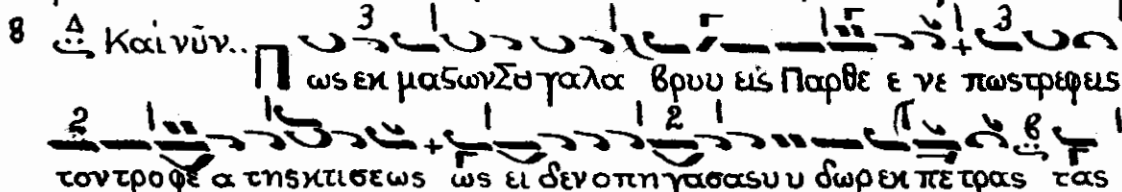 8 Δ Καὶ νῦν..
Πως εκ μαζων Σȣ γαλα βρυυ εις Παρθε ε νε πως τρεφεις
τον τροφε α της κτισεως ως ει δεν ο πηγασας υ υ δωρ εκ πετρας τας